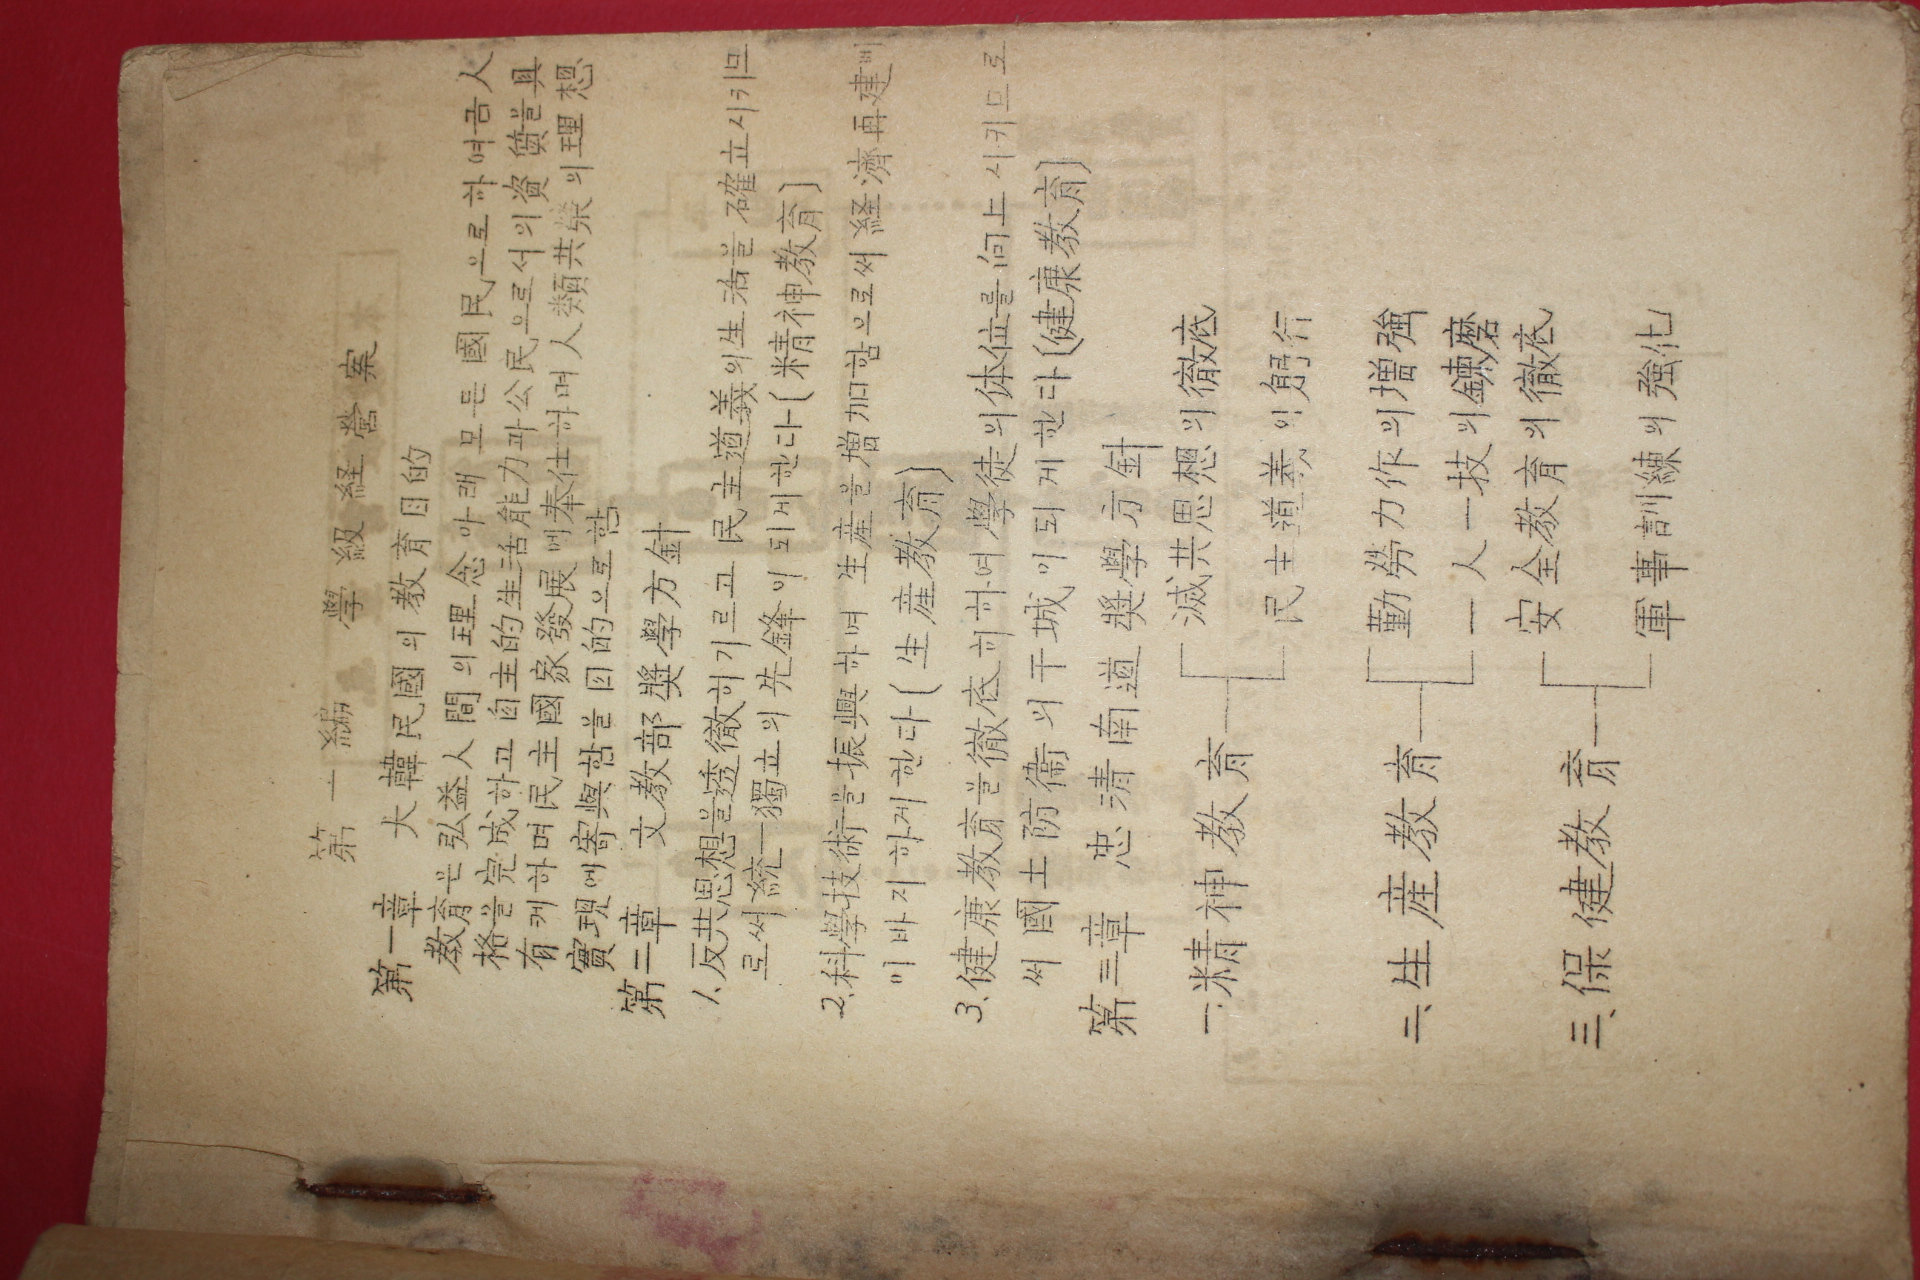 第一編 學級経営案
第一章 大韓民國의 教育目的
教育은 弘益人間의 理念아래 모든 國民으로하여금人
格을完成하고 自主的生活能力과公民으로서의資質을具
有케하며民主國家發展에奉仕하며人類共榮의理想
實現에寄與함을目的으로함
第二章 文教部奬學方針
1. 反共思想을透徹히기르고 民主道義의生活을確立시키므
로써統一獨立의先鋒이되게한다(精神教育)
2. 科學技術을振興하여 生産을增加함으로써経濟再建에
이바지하게한다(生産教育)
3. 健康教育을徹底히하여學徒의体位를向上시키므로
써國土防衛의干城이되게한다(健康教育)
第三章 忠清南道奬學方針
一、精神教育
滅共思想의徹底
民主道義의躬行
二、生産教育
勤勞力作의增強
一人一技의鍊磨
三、保健教育
安全教育의徹底
軍事訓練의強化